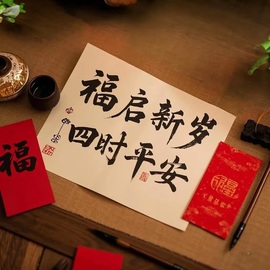 福启新岁
四时平安
福